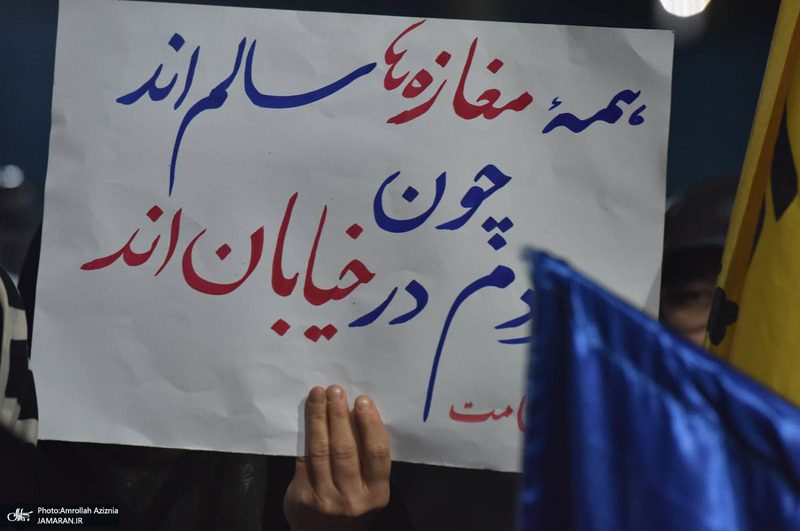 همهٔ مغازه‌ها سالم اند
چون
در خیابان اند
Photo:Amrollah Aziznia
JAMARAN.IR